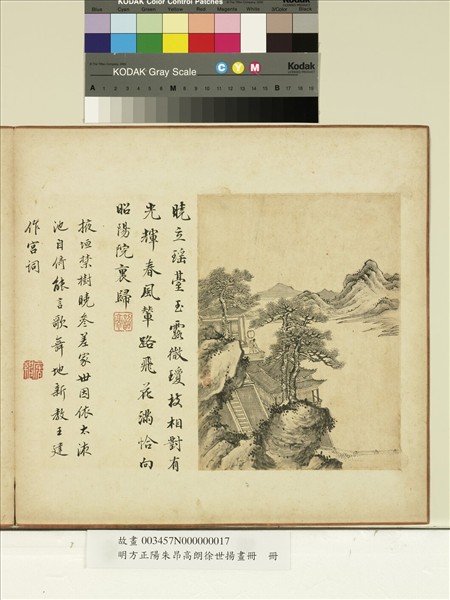 KODAK Color Control Patches
Blue Cyan Green Yellow Red Magenta White 3/Color Black
Kodak
KODAK Gray Scale
C Y M
Kodak
A 1 2 3 4 5 6 M 8 9 10 11 12 13 14 15 B 17 18 19
曉立瑤臺玉露微瓊枝相對有
光輝春風輦路飛花滿恰向
昭陽院裏歸
掖垣樹曉參差家世因依太液
池自倚能言歌舞地新教王建
作宮詞
故畫 003457N000000017
明方正陽朱昂高朗徐世揚畫冊 冊